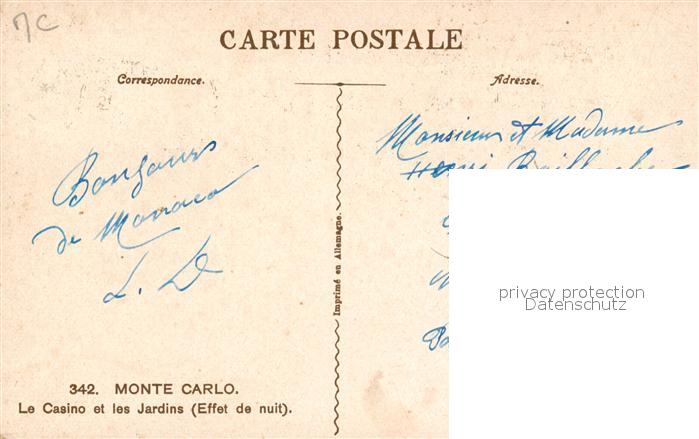 MC
CARTE POSTALE
Correspondance.
Adresse.
Bonjours
de Monaco
L. D
Imprimé en Allemagne.
Monsieur et Madame
Henri
privacy protection
Datenschutz
342. MONTE CARLO.
Le Casino et les Jardins (Effet de nuit).